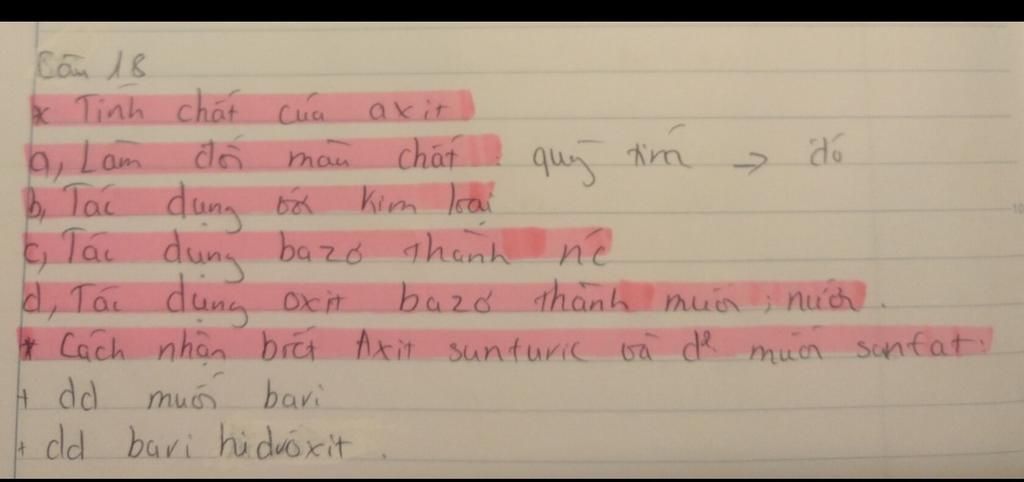 Câu 18
* Tính chất của axit
a, Làm đổi màu chất: quỳ tím → đỏ
b, Tác dụng với kim loại
c, Tác dụng bazơ thành nc
d, Tác dụng oxit bazơ thành muối, nước.
* Cách nhận biết Axit sunfuric và d² muối sunfat:
+ dd muối bari
+ dd bari hiđrôxit.